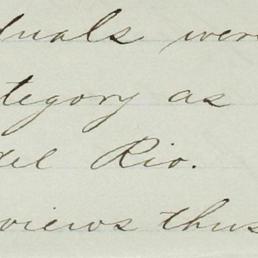 duals were
tegory as
del Rio.
views thus